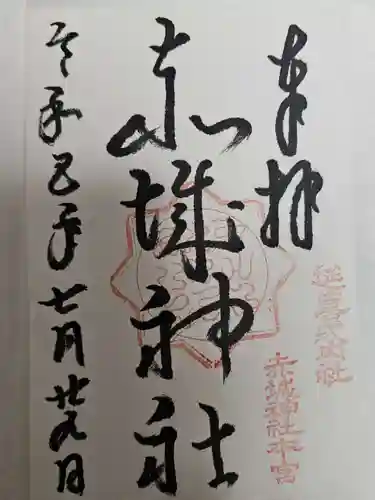 奉拝
延喜式内社
赤城神社本宮
赤城神社
七月廿九日